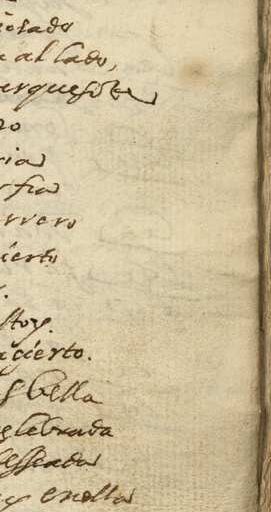 iosado
al lado,
arquesote
ro
ria
rfia
errero
ierto
stoy.
acierto.
s bella
elebrada
desseada
y en ella